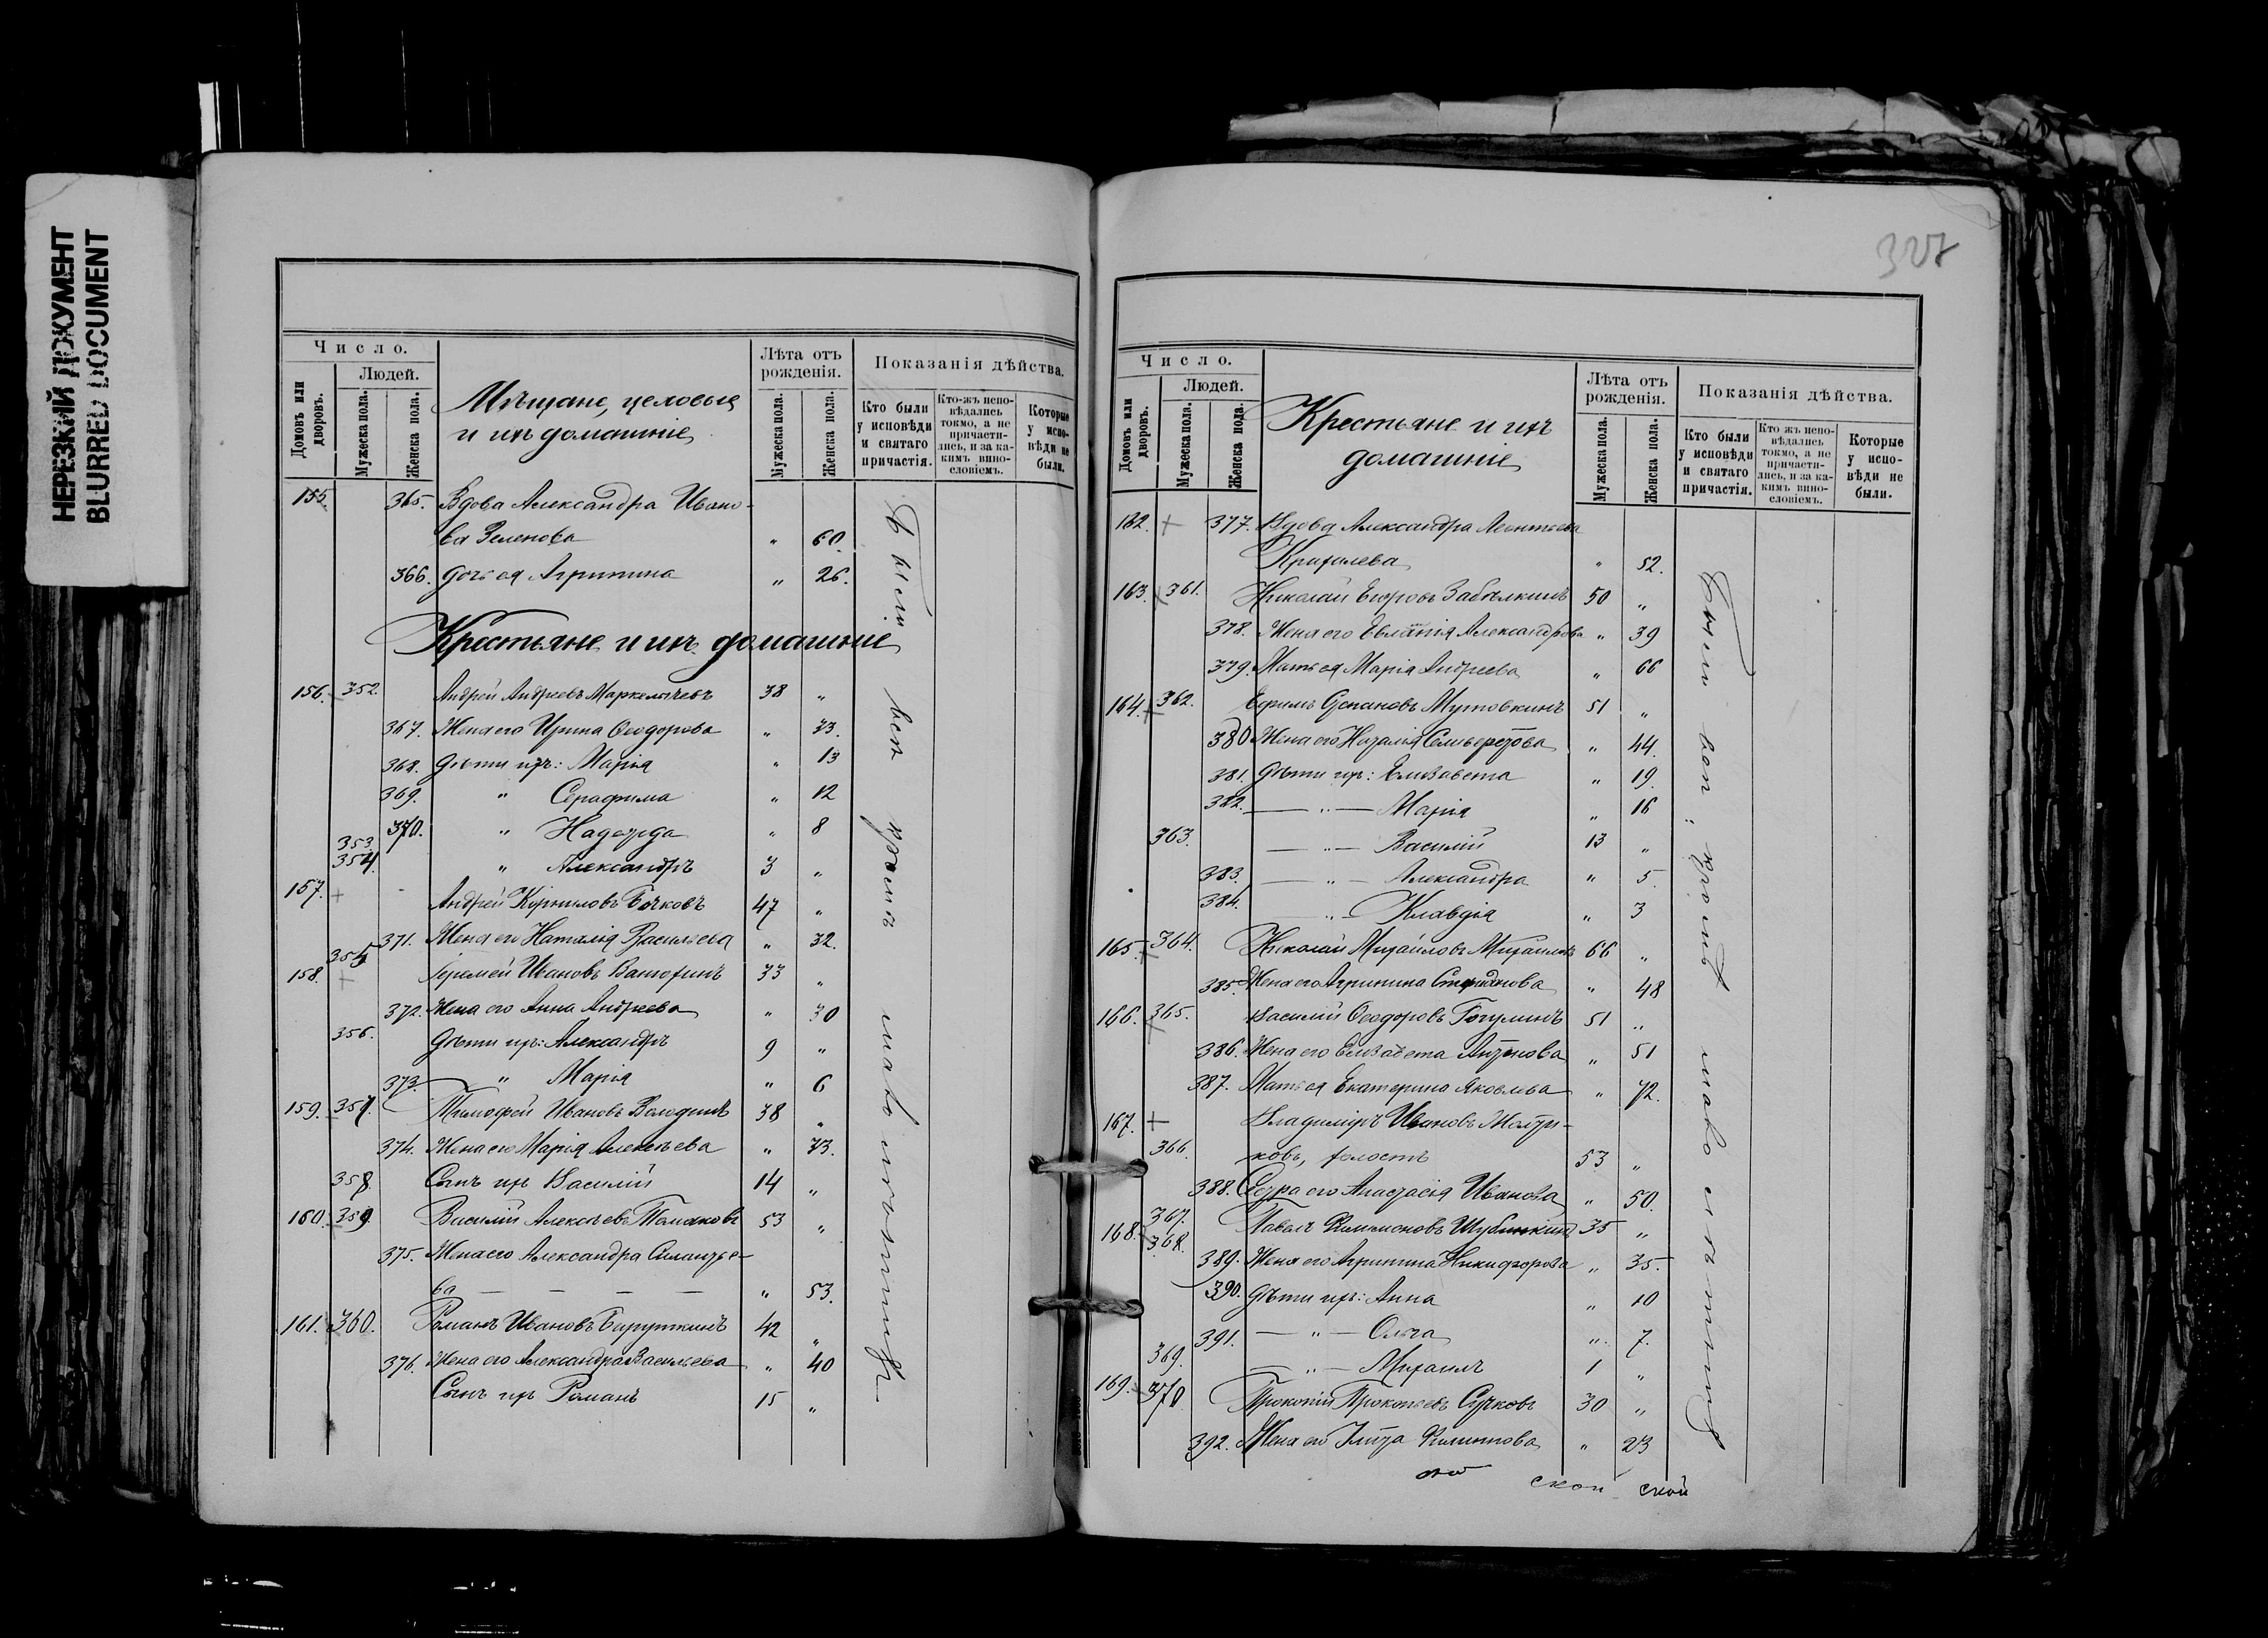 НЕРЕЗКИЙ ДОКУМЕНТ
BLURRED DOCUMENT
Число.
Людей.
Домовъ или дворовъ.
Мужеска пола.
Женска пола.
Мѣщане, цеховые
и ихъ домашніе
Лѣта отъ рожденія.
Мужеска пола.
Женска пола.
Показанія дѣйства.
Кто были у исповѣди и святаго причастія.
Кто-жъ исповѣдались токмо, а не причастились, и за какимъ винословіемъ.
Которые у исповѣди не были.
155. 365. Вдова Александра Ивано-
ва Зеленова " 60.
366. дочь ея Агрипина " 26.
Крестьяне и ихъ домашніе
156. 352. Андрей Андреевъ 38 "
367. Жена его Ирина Ѳеодорова " 33.
368. Дѣти ихъ: Марія " 13
369. " Серафима " 12
370. " Надежда " 8
353.
354. " Александръ 3 "
157. Андрей Корниловъ Бочковъ 47 "
371. Жена его Наталія Васильева " 32.
355
158. Ивановъ 33 "
372. Жена его Анна Андреева " 30
356. Дѣти ихъ: Александръ 9 "
373. " Марія " 6
159. 357. Тимофей Ивановъ Володинъ 38 "
374. Жена его Марія Алексѣева " 33.
358. Сынъ ихъ Василій 14 "
160. 359. Василій Алексѣевъ 53 "
375. Жена его Александра Силантье-
ва — — — — " 53.
161. 360. Романъ Ивановъ 42 "
376. Жена его Александра Васильева " 40
Сынъ ихъ Романъ 15 "
327
Число.
Людей.
Домовъ или дворовъ.
Мужеска пола.
Женска пола.
Крестьяне и ихъ
домашніе
Лѣта отъ рожденія.
Мужеска пола.
Женска пола.
Показанія дѣйства.
Кто были у исповѣди и святаго причастія.
Кто жъ исповѣдались токмо, а не причастились, и за какимъ винословіемъ.
Которые у исповѣди не были.
162. + 377. Вдова Александра Леонтьева
" 52.
163. 361. Николай Егоровъ Забѣлкинъ 50 "
378. Жена его Евлампія Александрова " 39
379. Мать ея Марія Андреева " 66
164. 362. Ефимъ Степановъ Мутовкинъ 51 "
380 Жена его Наталія Селиверстова " 44.
381. Дѣти ихъ: Елизавета " 19.
382. — " — Марія " 16
363. — " — Василій 13 "
383. — " — Александра " 5.
384. " — Клавдія " 3
165. 364. Николай Михайловъ 66 "
385. Жена его Агрипина Степанова " 48
166. 365. Василій Ѳеодоровъ 51 "
386. Жена его Елизавета Антонова " 51
387. Мать ея Екатерина Яковлева " 72.
167. + Владиміръ Ивановъ
366. ковъ, холостъ 53 "
388. Сестра его Анастасія Иванова " 50.
367.
168. 368. Павелъ Филимоновъ 35 "
389. Жена его Агрипина Никифорова " 35.
390. Дѣти ихъ: Анна " 10
391. — " — Ольга " 7.
369. — " — Михаилъ 1 "
169. 370 Прокопій Прокопьевъ Сучковъ 30 "
392. Жена его Филиппова " 23
ской ской